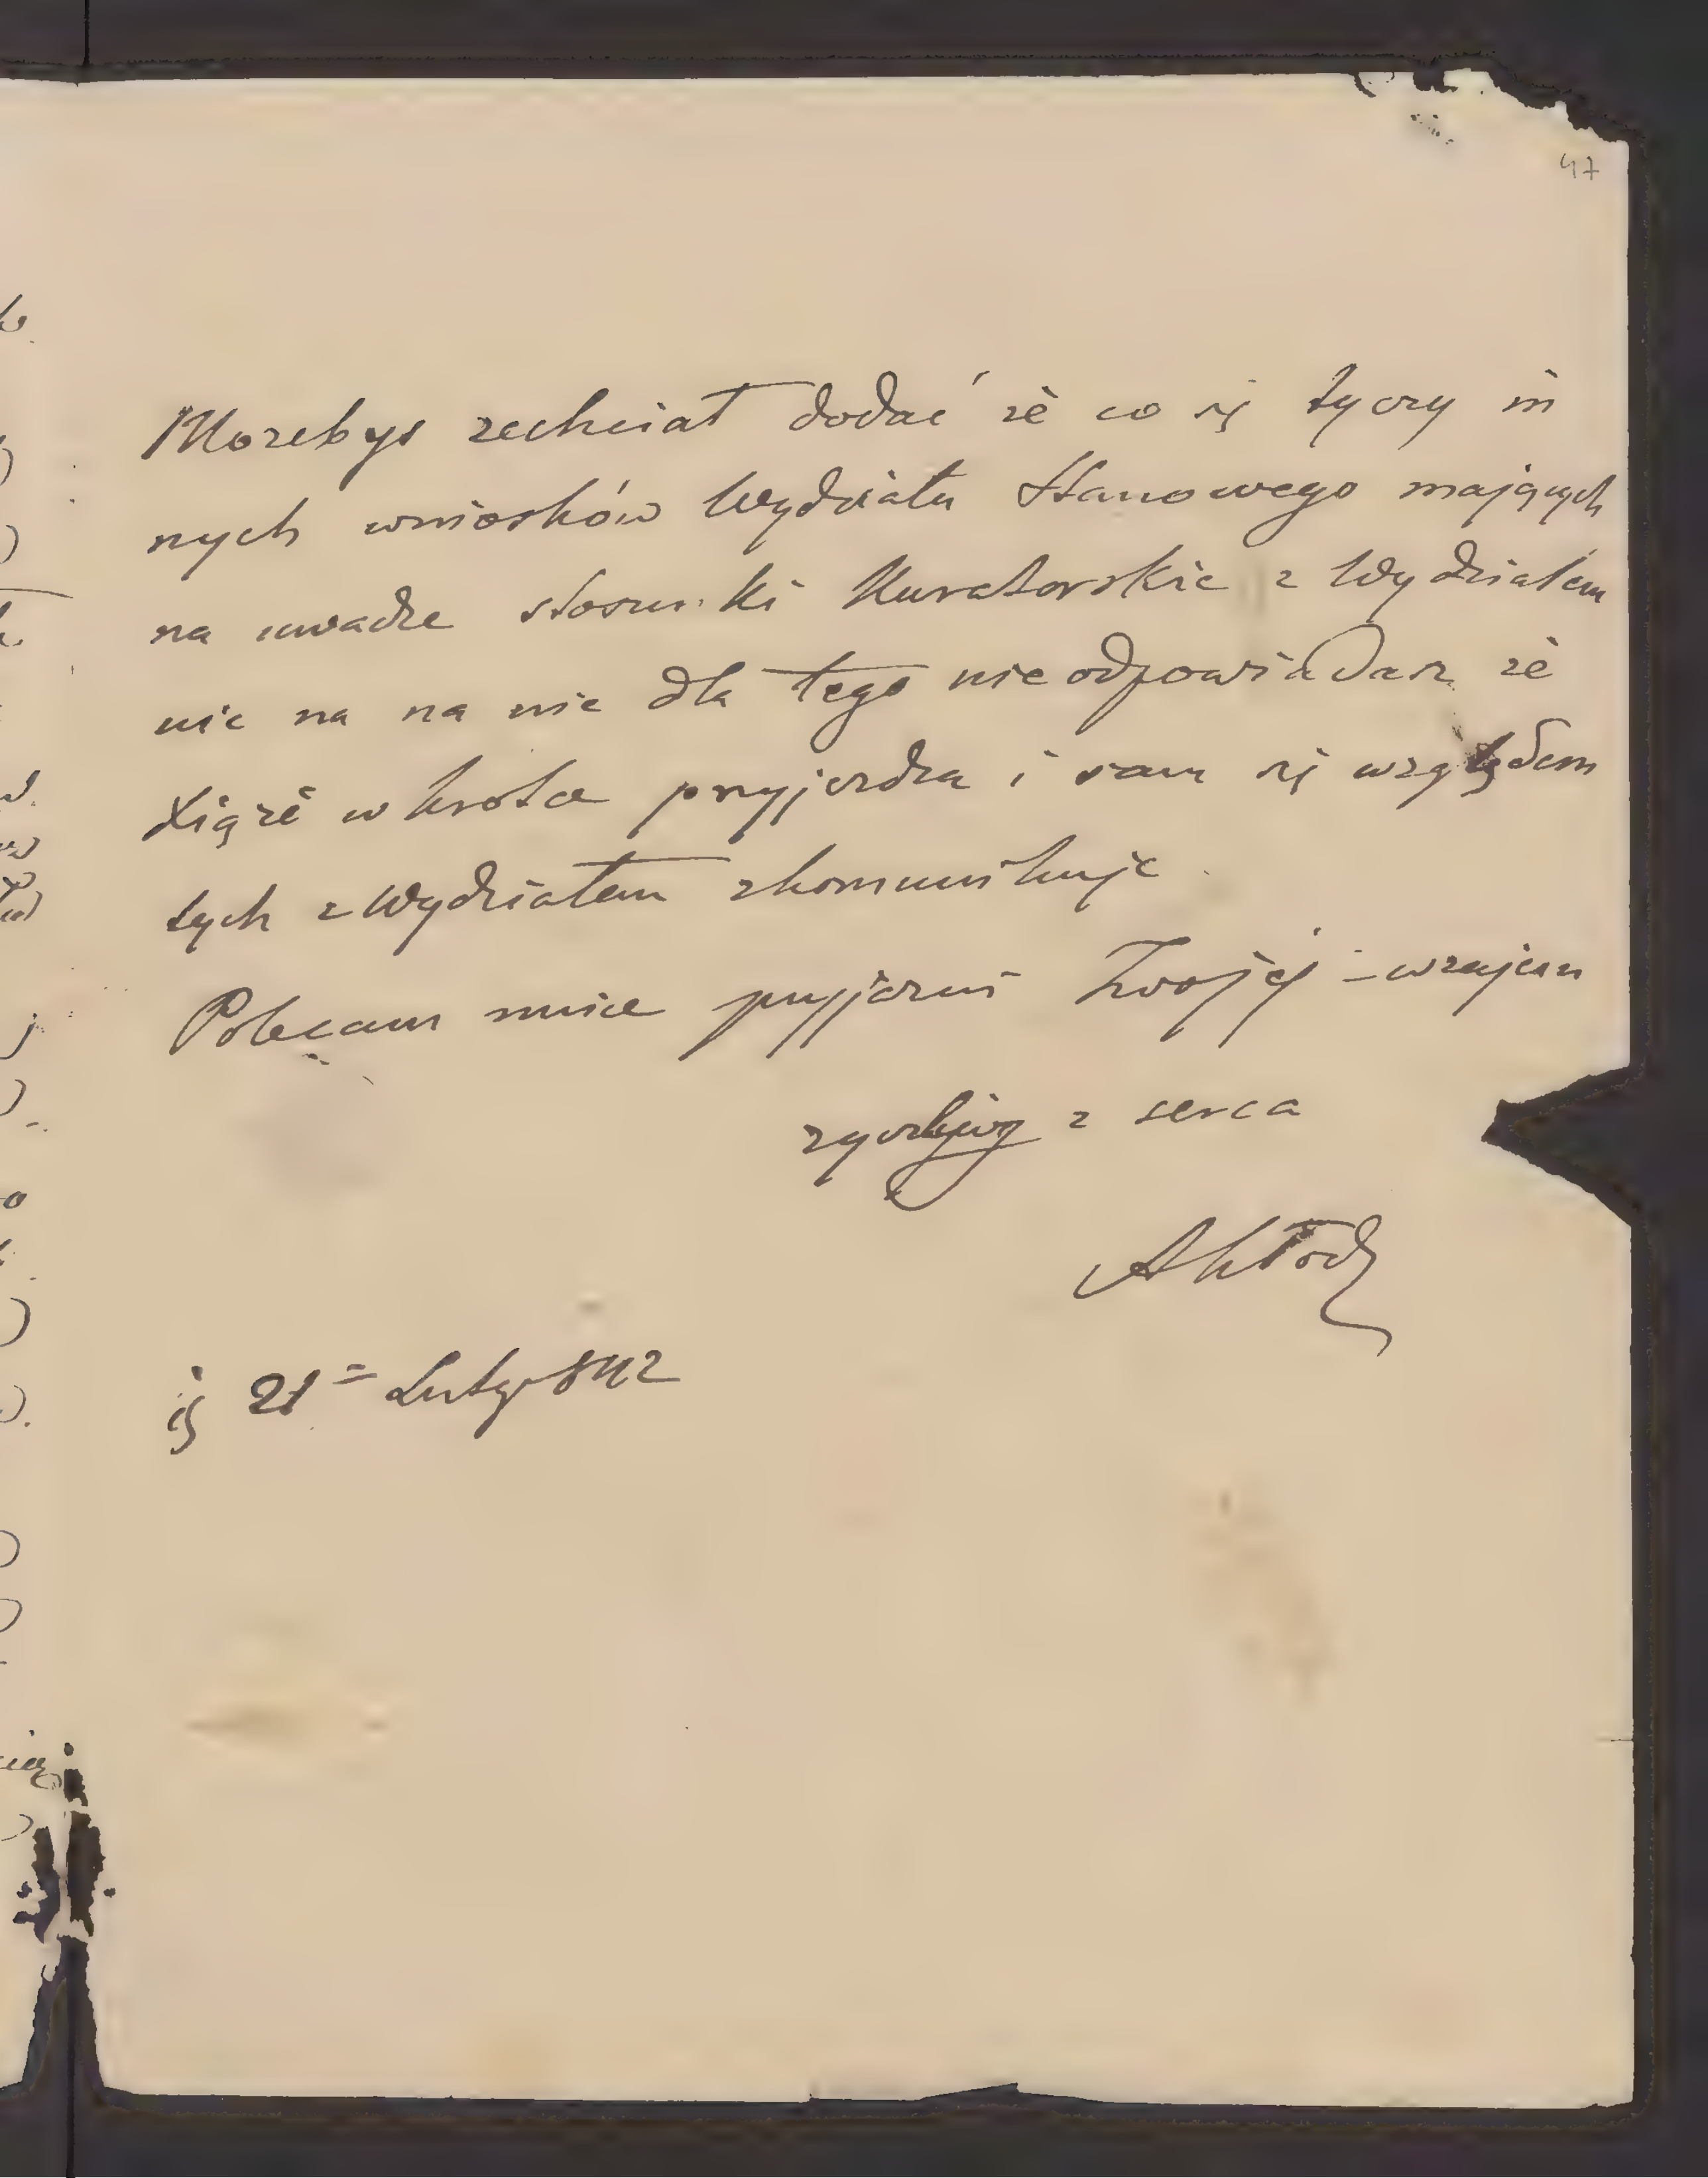 47
Mozebys zechciał dodać że co się tyczy in
nych wniosków Wydziału Stanowego mających
na uwadze stosunki Kuratorskie z Wydziałem
nic na na nie dla tego nieodpowiadasz że
Xiąże w krotce przyjezdza i sam się względem
tych z Wydziałem zkomunikuje
Polecam mnie przyjazni Twojéj - wzajem
zyczliwy z serca
AKłodz
21 = Luty 842